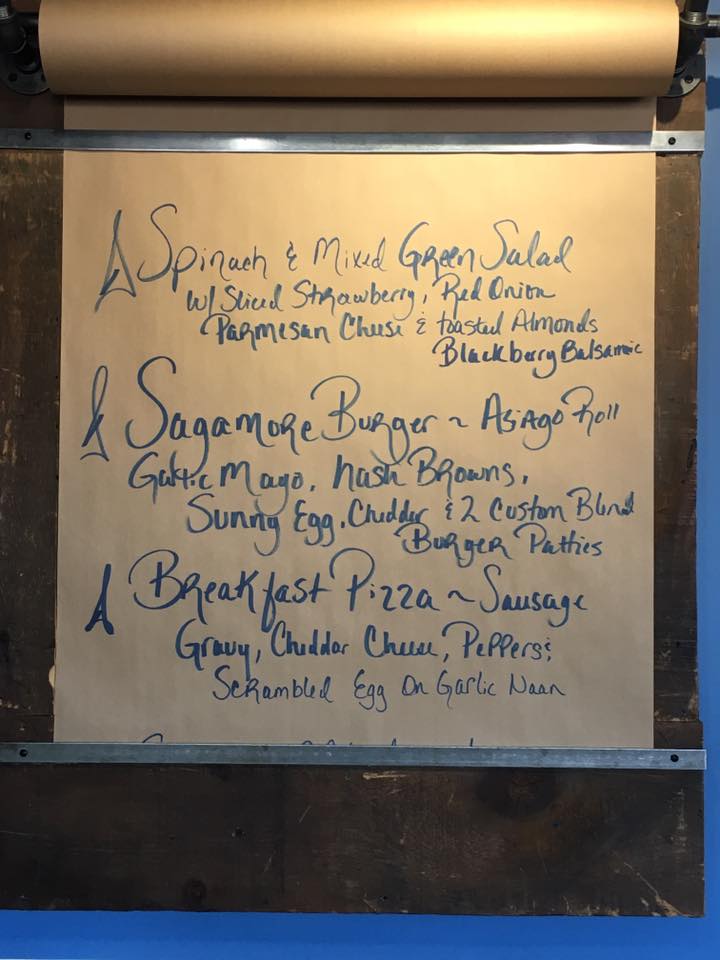 Spinach & Mixed Green Salad
w/ Sliced Strawberry, Red Onion
Parmesan Cheese & toasted Almonds
Blackberry Balsamic
Sagamore Burger ~ Asiago Roll
Garlic Mayo, Hash Browns,
Sunny Egg, Cheddar & 2 Custom Blend
Burger Patties
Breakfast Pizza ~ Sausage
Gravy, Cheddar Cheese, Peppers &
Scrambled Egg On Garlic Naan